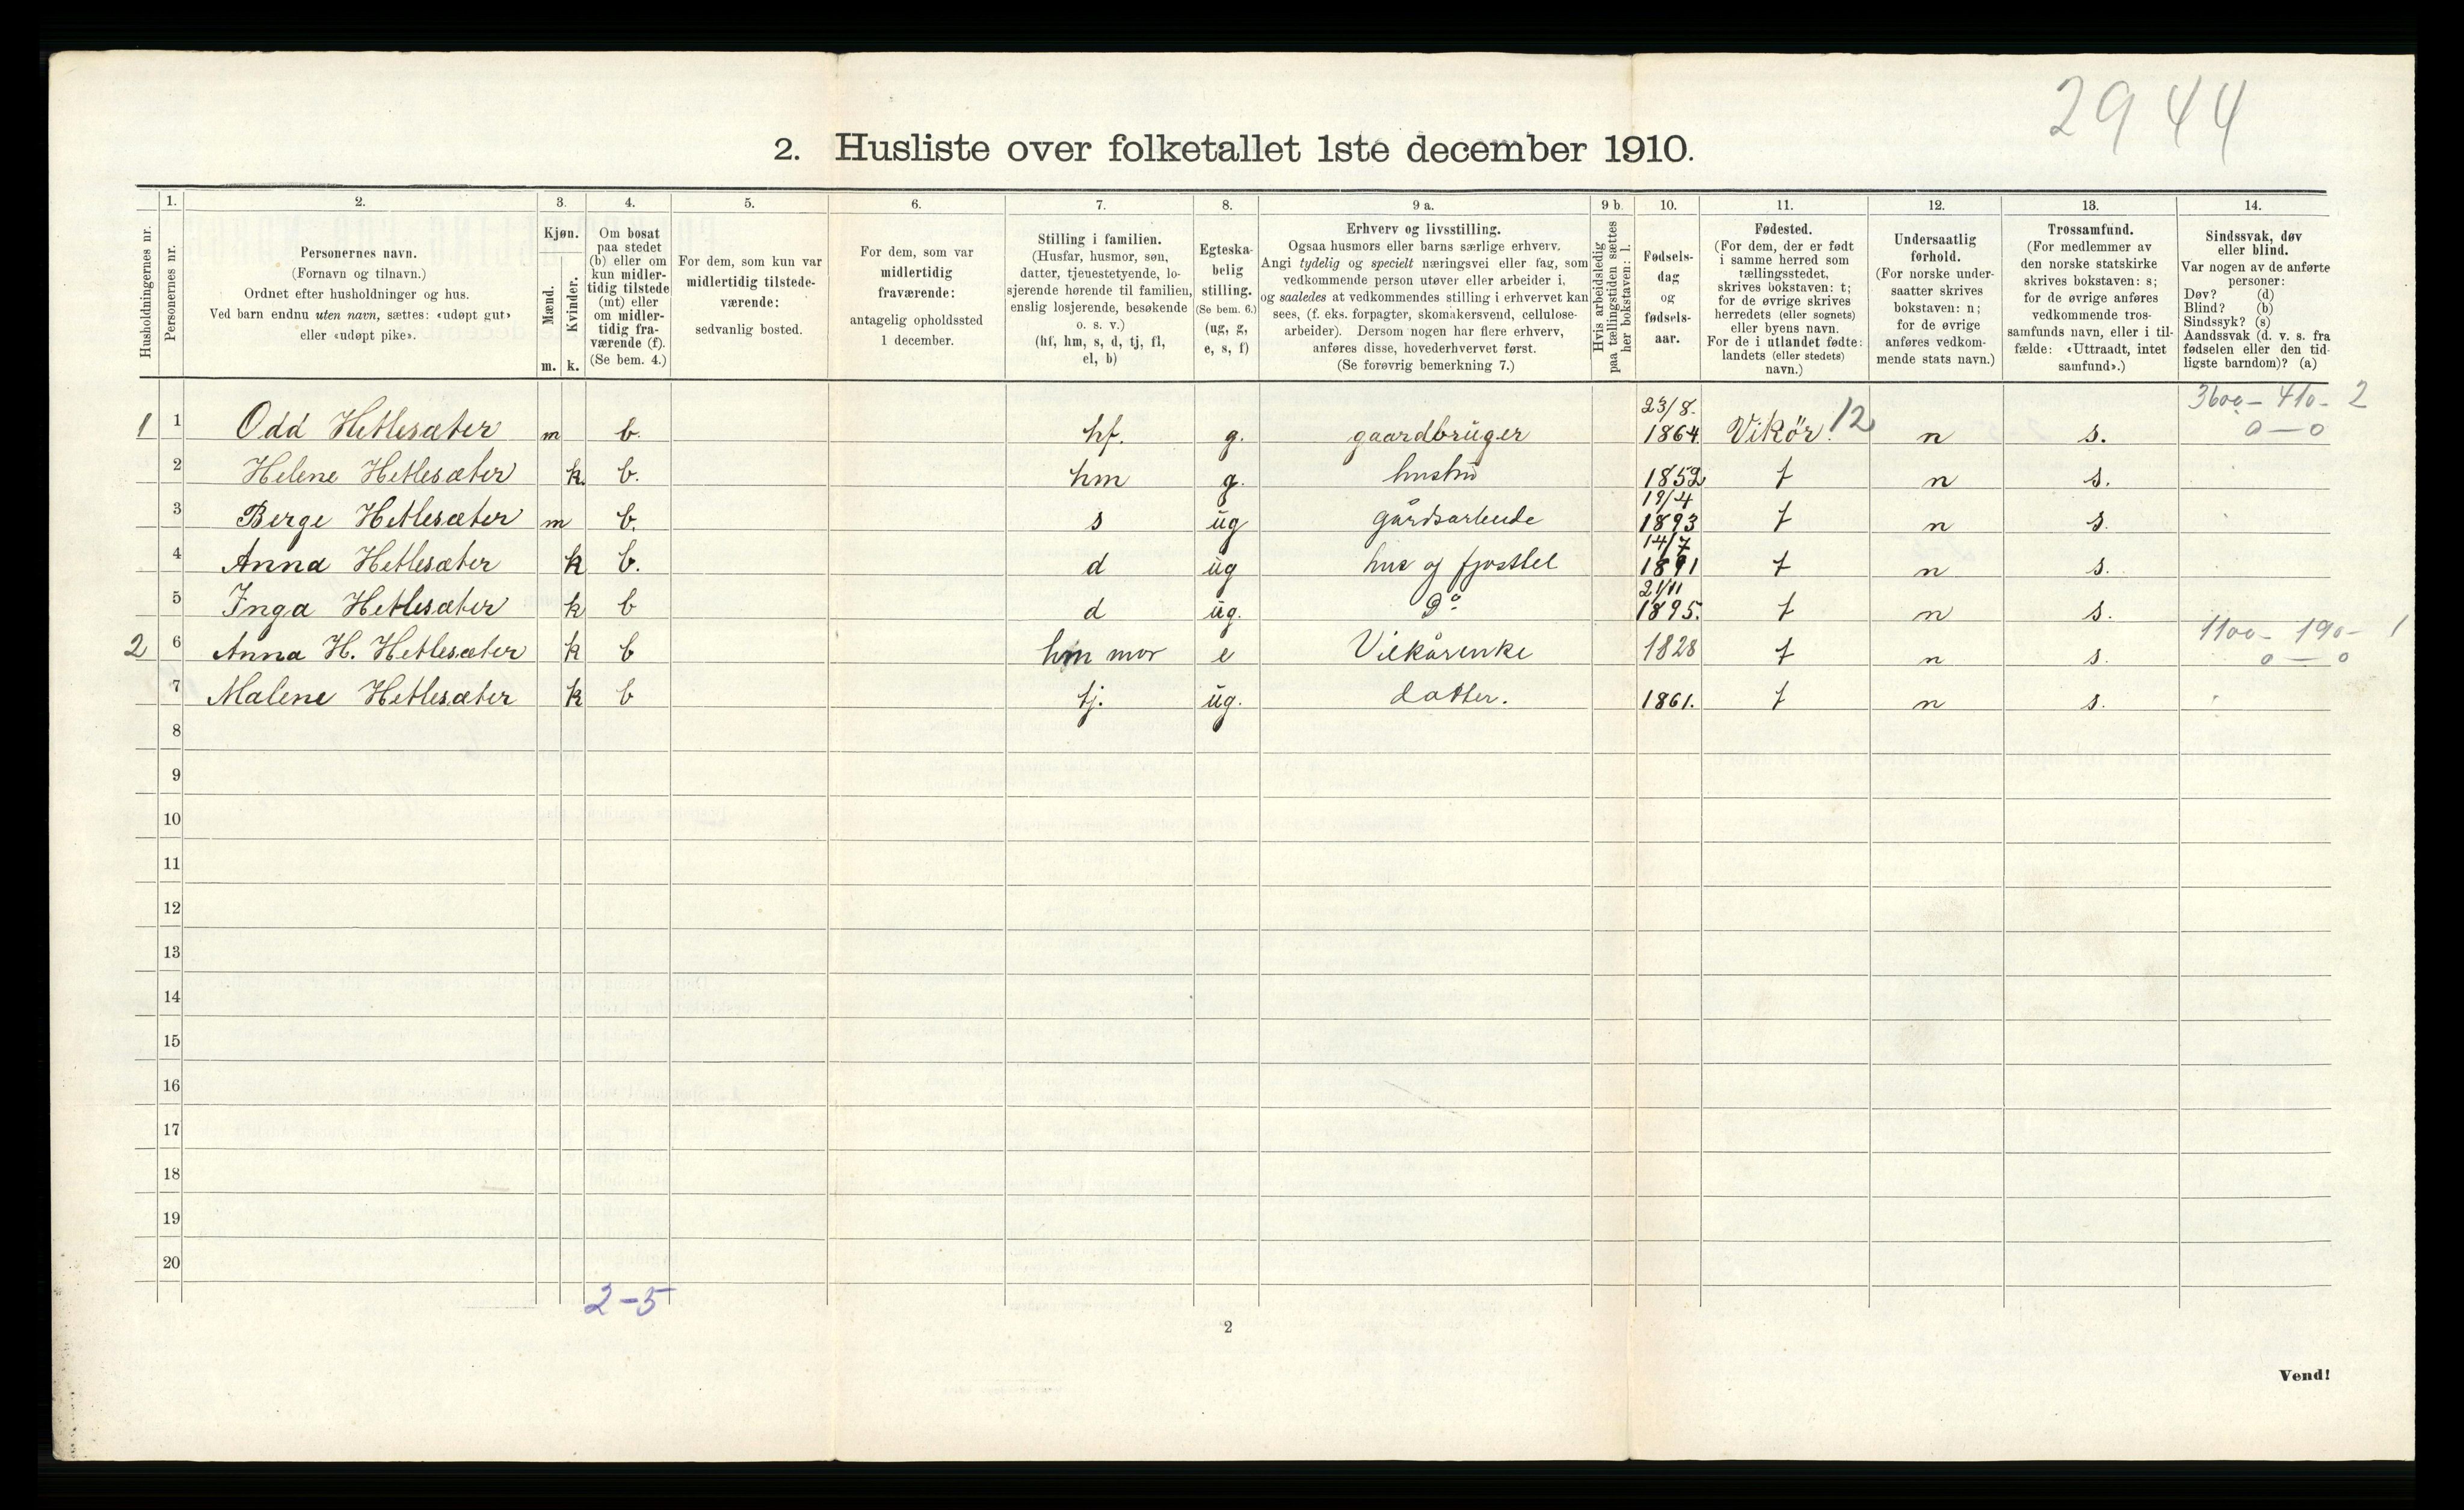 2944
2. Husliste over folketallet 1ste december 1910.
Husholdningernes nr.
1.
Personernes nr.
2.
Personernes navn.
(Fornavn og tilnavn.)
Ordnet efter husholdninger og hus.
Ved barn endnu uten navn, sættes: «udøpt gut»
eller «udøpt pike».
3.
Kjøn.
Mænd.
Kvinder.
m. k.
4.
Om bosat
paa stedet
(b) eller om
kun midler-
tidig tilstede
(mt) eller
om midler-
tidig fra-
værende (f).
(Se bem. 4.)
5.
For dem, som kun var
midlertidig tilstede-
værende:
sedvanlig bosted.
6.
For dem, som var
midlertidig
fraværende:
antagelig opholdssted
1 december.
7.
Stilling i familien.
(Husfar, husmor, søn,
datter, tjenestetyende, lo-
sjerende hørende til familien,
enslig losjerende, besøkende
o. s. v.)
(hf, hm, s, d, tj, fl,
el, b)
8.
Egteska-
belig
stilling.
(Se bem. 6.)
(ug, g,
e, s, f)
9 a.
Erhverv og livsstilling.
Ogsaa husmors eller barns særlige erhverv.
Angi tydelig og specielt næringsvei eller fag, som
vedkommende person utøver eller arbeider i,
og saaledes at vedkommendes stilling i erhvervet kan
sees, (f. eks. forpagter, skomakersvend, cellulose-
arbeider). Dersom nogen har flere erhverv,
anføres disse, hovederhvervet først.
(Se forøvrig bemerkning 7.)
9 b.
Hvis arbeidsledig
paa tællingstiden sættes
her bokstaven: l.
10.
Fødsels-
dag
og
fødsels-
aar.
11.
Fødested.
(For dem, der er født
i samme herred som
tællingsstedet,
skrives bokstaven: t;
for de øvrige skrives
herredets (eller sognets)
eller byens navn.
For de i utlandet fødte:
landets (eller stedets)
navn.)
12.
Undersaatlig
forhold.
(For norske under-
saatter skrives
bokstaven: n;
for de øvrige
anføres vedkom-
mende stats navn.)
13.
Trossamfund.
(For medlemmer av
den norske statskirke
skrives bokstaven: s;
for de øvrige anføres
vedkommende tros-
samfunds navn, eller i til-
fælde: «Uttraadt, intet
samfund».)
14.
Sindssvak, døv
eller blind.
Var nogen av de anførte
personer:
Døv? (d)
Blind? (b)
Sindssyk? (s)
Aandssvak (d. v. s. fra
fødselen eller den tid-
ligste barndom)? (a)
3600- 410- 2
1 1 Odd Hetlesæter m b. hf. g. gaardbruger 23/8. 1864. Vikör. 12 n s. 0 — 0
2 Helene Hetlesæter k. b. hm g. hustru 1852 t n s.
3 Berge Hetlesæter m b. s ug gårdsarbeide 19/4 1893 t n s.
4 Anna Hetlesæter k b. d ug hus og fjosstel 14/7 1891 t n s.
5 Inga Hetlesæter k b d ug. Do 21/11 1895. t n s.
1100- 190- 1
2 6 Anna H. Hetlesæter k b hm mor e Vilkårenke 1828 t n s. 0 — 0
7 Malene Hetlesæter k b tj. ug. datter. 1861. t n s.
8
9
10
11
12
13
14
15
16
17
18
19
20
2-5
2
Vend!